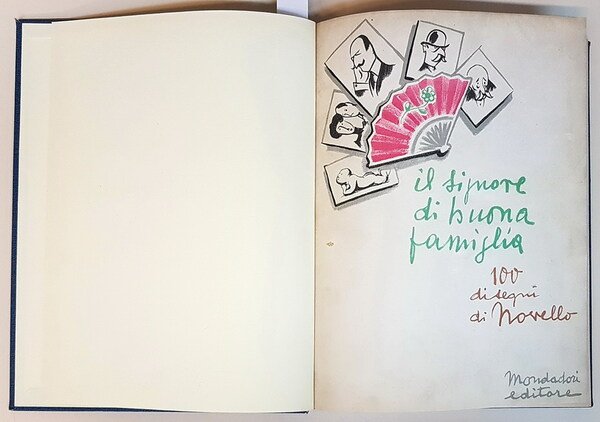 il signore
di buona
famiglia
100
disegni
di Novello
Mondadori
editore